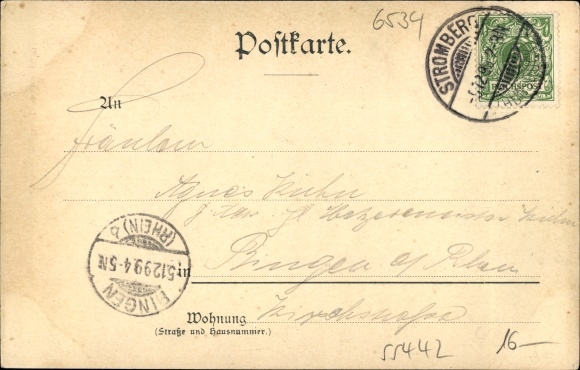 6534
Postkarte.
STROMBERG
REICHSPOST
An
Fräulein
Agnes Kuhn
Bingen a/Rhein
in
BINGEN (RHEIN) b
5.12.99.4-5N
Kirchstraße
Wohnung
(Straße und Hausnummer.)
55442
16-